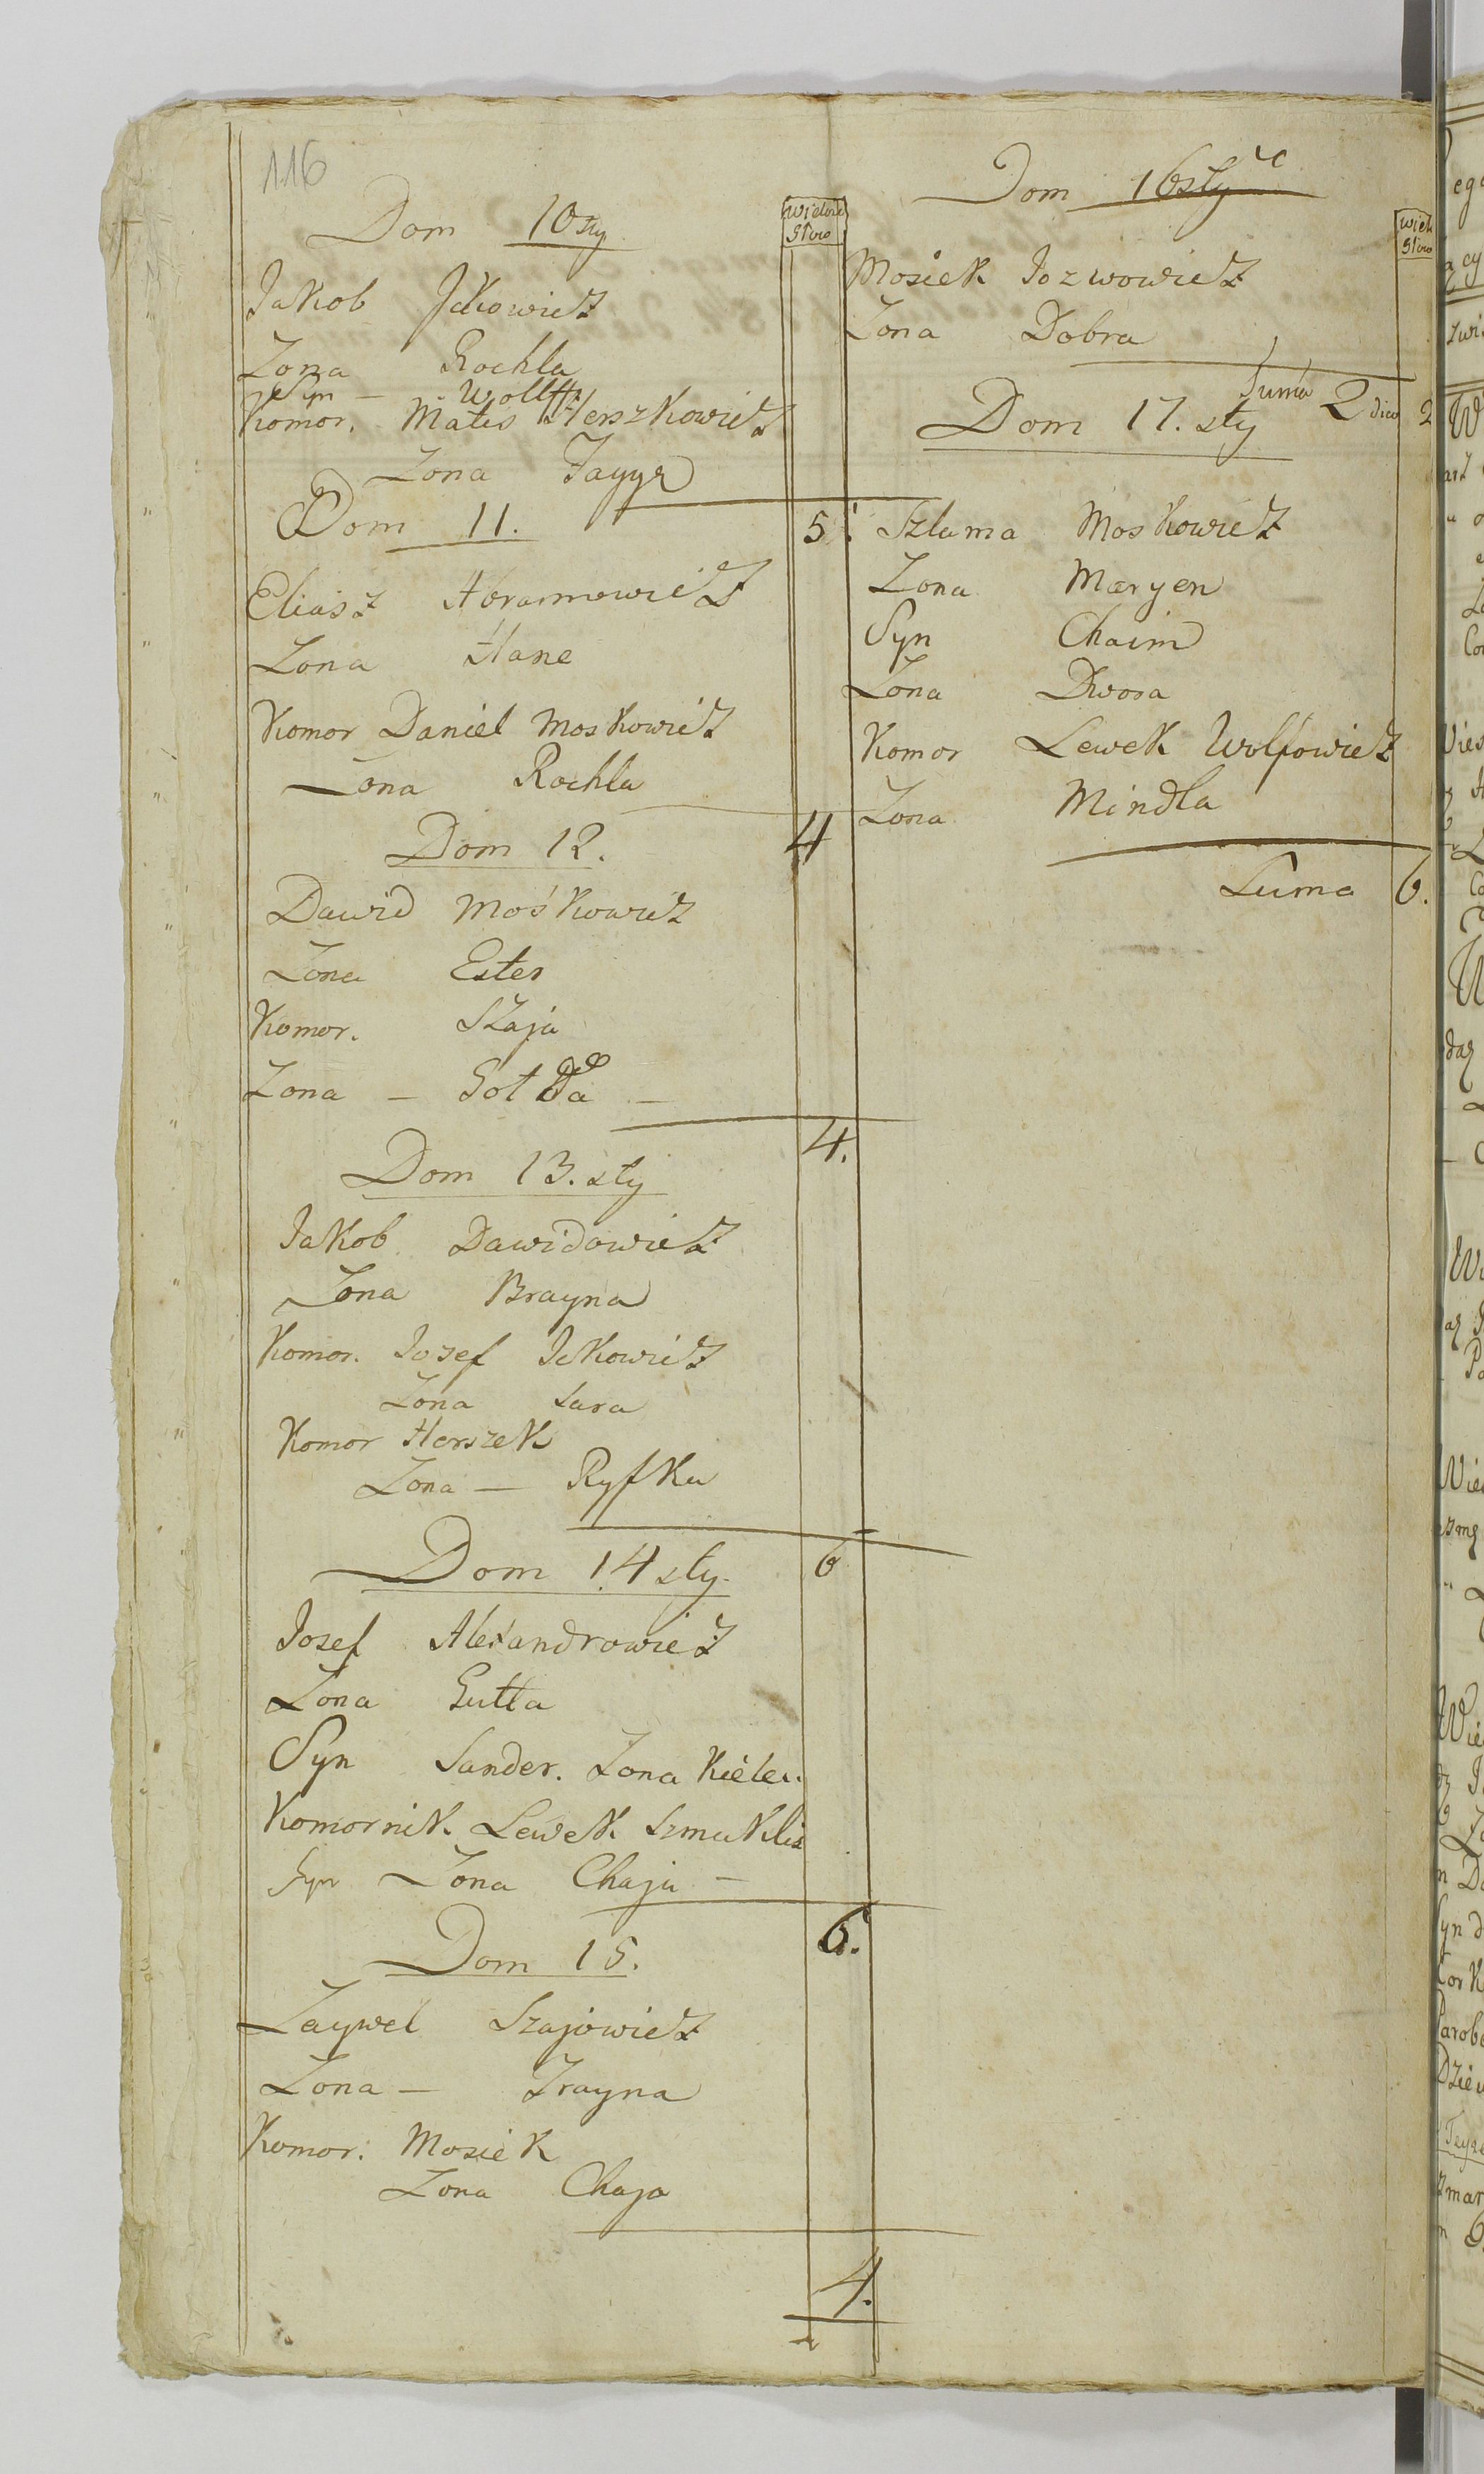 116
Dom 10 sty
wiele
Głów
Jakob Jckowicz
Zona Rochla
Syn — Wolff
Komor. Mates Herszkowicz
Zona Fayga
5.
Dom 11.
Eliasz Abramowicz
Zona Hane
Komor Daniel Moskowicz
Zona Rochla
4
Dom 12.
Dawid Mośkowicz
Zona Ester
Komor. Szaja
Zona — Gołda —
4.
Dom 13. sty
Jakob Dawidowicz
Zona Brayna
Komor. Jozef Ickowicz
Zona Sara
Komor Herszek
Zona — Ryfka
6
Dom 14 sty.
Josef Alexandrowicz
Zona Gutta
Syn Sander. Zona Kiele.
Komornik Lewek Szmuklis
Syn Zona Chaja —
6.
Dom 15.
Zaywel Szajowicz
Zona — Trayna
Komor. Mosiek
Zona Chaja
4.
Dom 16sty
wiele
Głów
Mosiek Jozwowicz
Zona Dobra
Suma 2 dico 2
Dom 17. sty
Szlama Moskowicz
Zona Maryen
Syn Chaim
Zona Dwosa
Komor Lewek Wolfowicz
Zona Mindla
Suma 6.